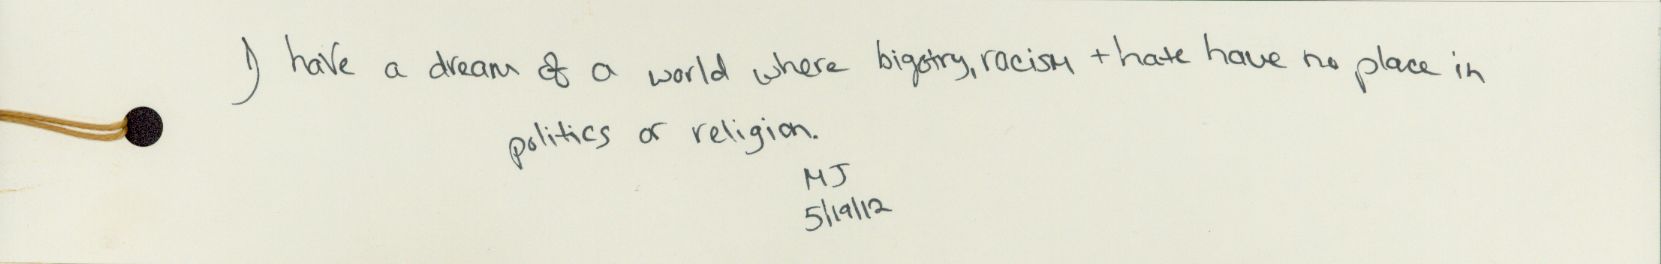 I have a dream of a world where bigotry, racism + hate have no place in
politics or religion.
MJ
5/19/12